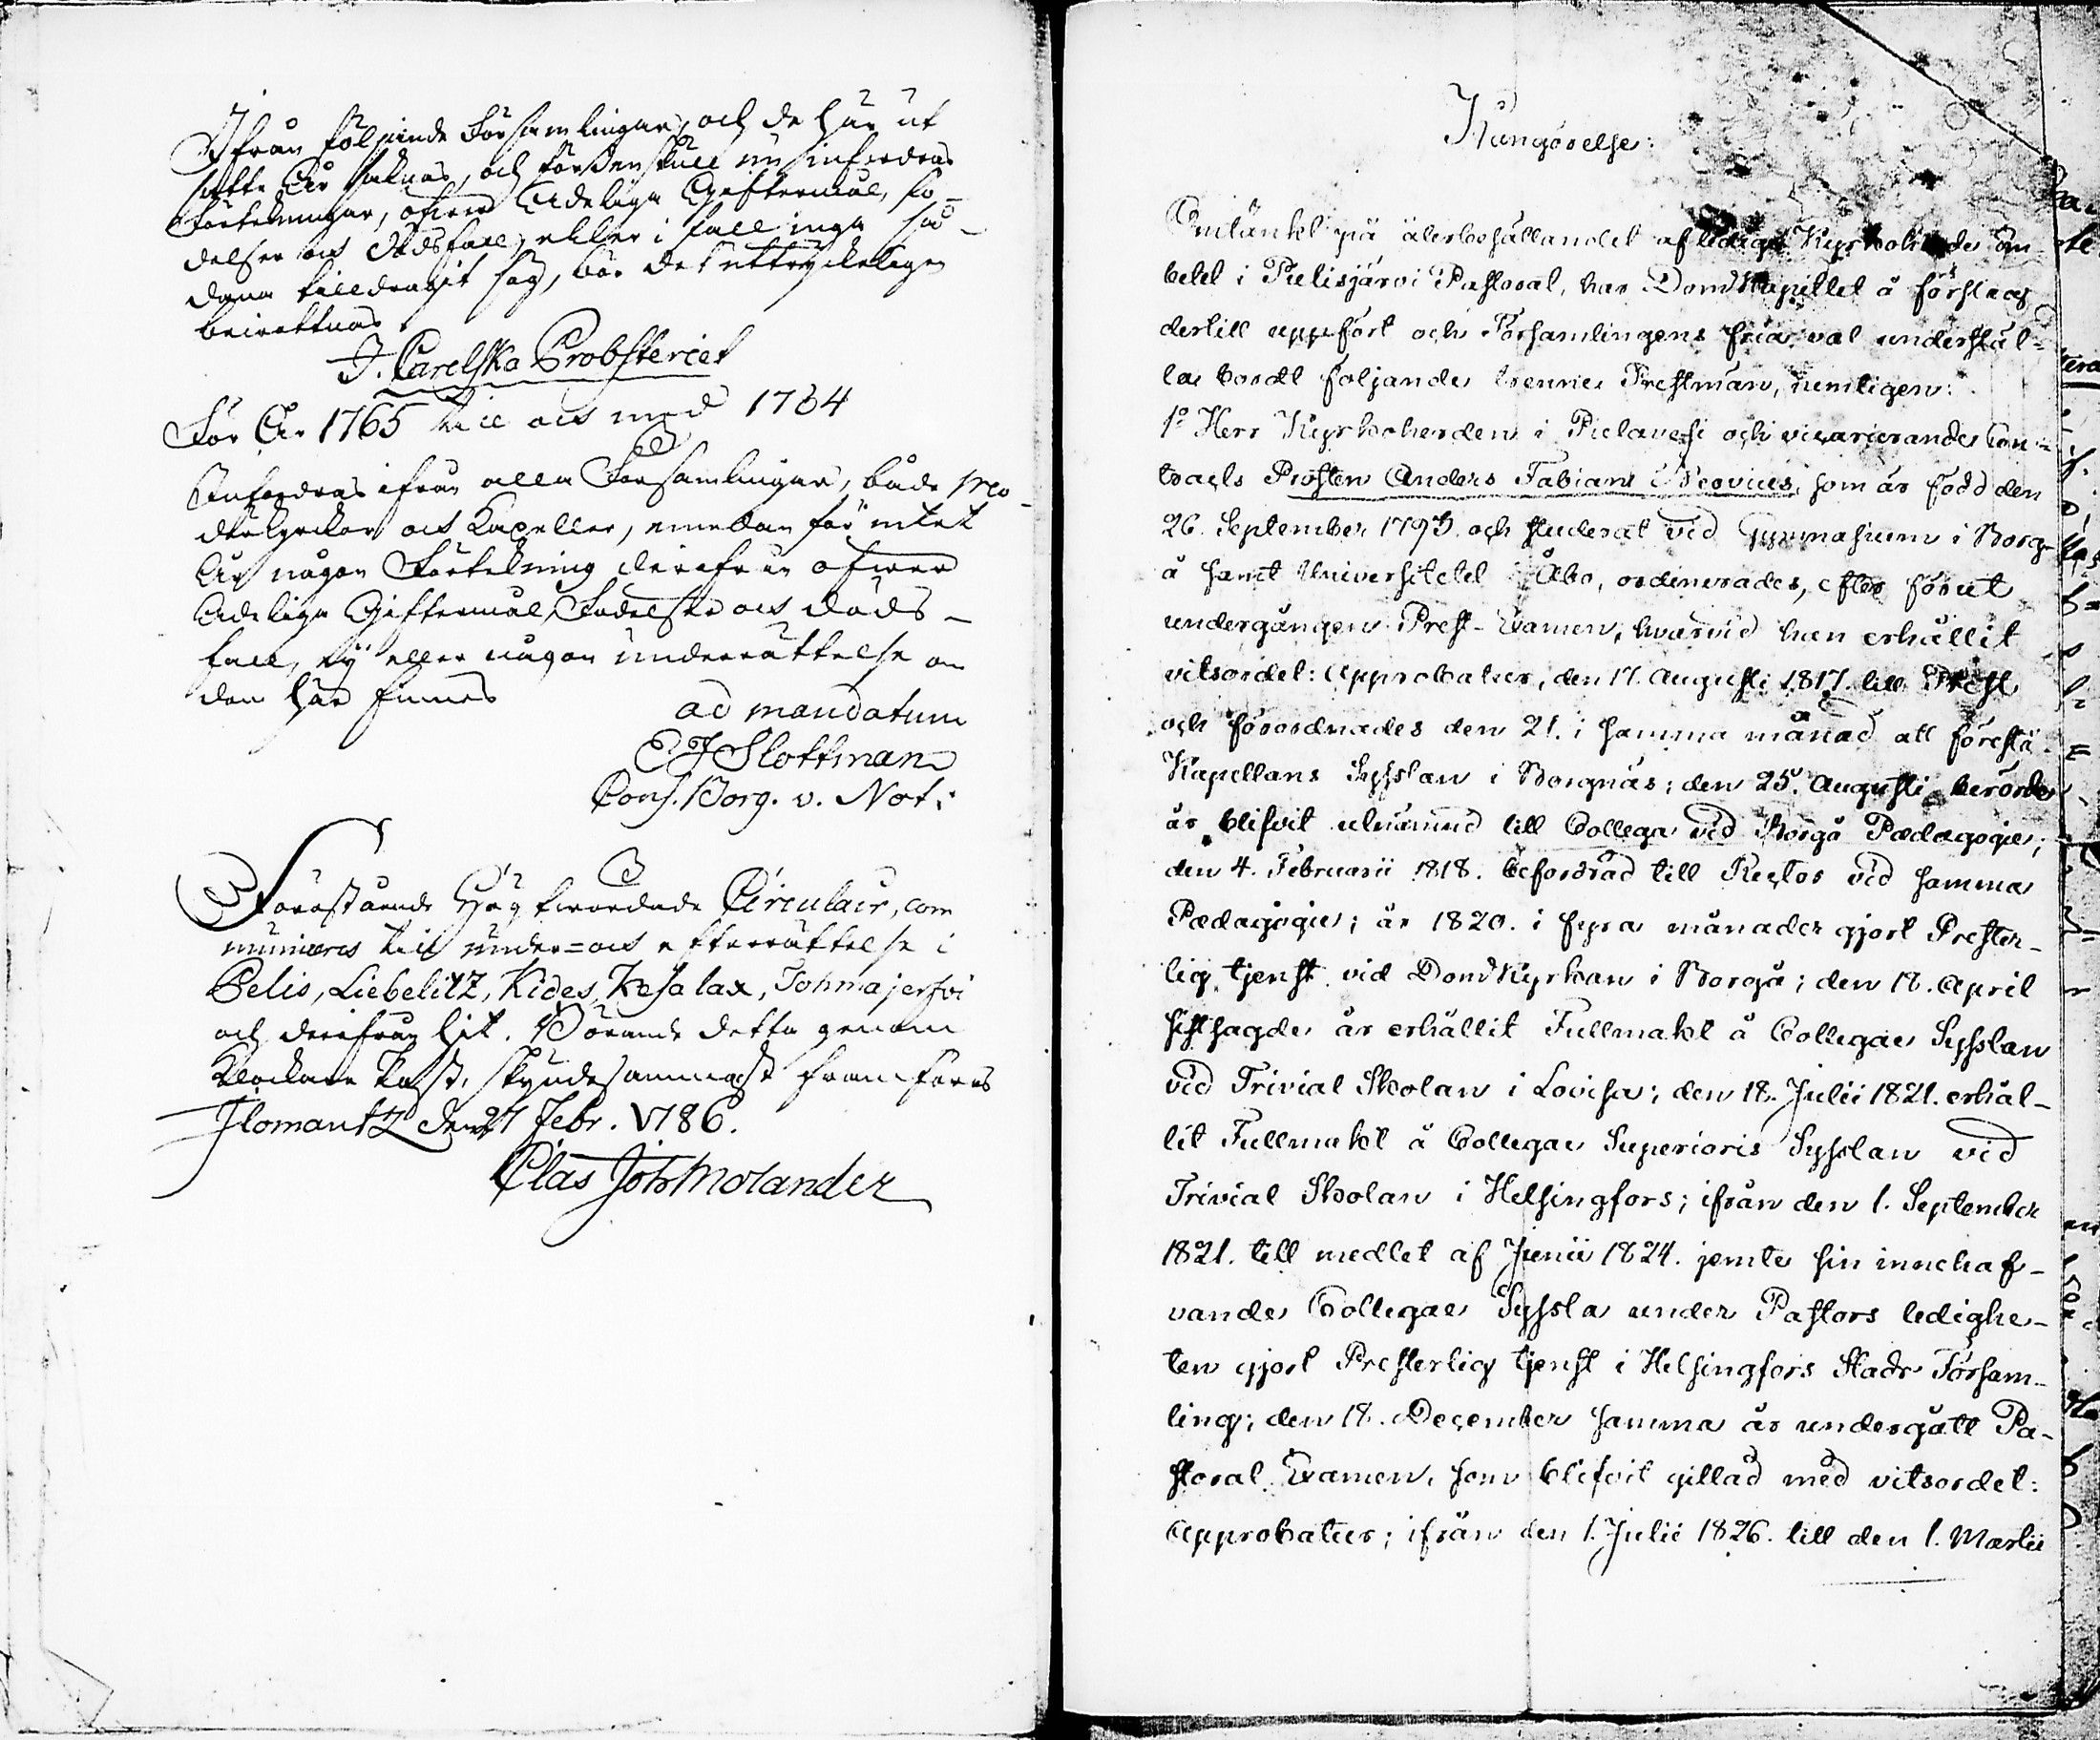 Ifrån följande Församlingar, och de här ut
satte År saknas, och förthenskull nu infordras
Förtekningar, öfver Adeliga Giftermål, fö-
delser och dödsfall, eller i fall inga så-
dana tilldragit sig, bör det uttryckeligen
berättas
I. Carelska Probsteriet
För År 1765 till och med 1784
Infordras ifrån alla Församlingar, både Mo-
derkyrkor och Capeller, emedan för intet
År någon Förtekning derifrån öfver
Adeliga Giftermål, Födelse och döds-
fall, ey eller någon underrättelse om
dem här finnes
ad mandatum
E J Slottman
Cons. Borg. v. Not:
Förestående Högtvördade Circulair, com
municeras till under= och efterrättelse i
Pelis, Liebelitz, Kides, Kesalax, Tohmajerfvi
och derifrån hit. Börande detta genom
Klockare Kast, skyndesammast framföras
Ilomantz den 27 Febr. 1786.
Clas Joh Molander
Kungörelse:
Omtänkt på återbesättandet af lediga Kyrkoherde Em-
betet i Pielisjärvi Pastorat, har DomKapitlet å förslag
dertill uppfört och Församlingens fria val understäl=
la bordt följande trenne Prestmän, nemligen:
1º Herr Kyrkoherden i Pielavesi och vicarierande Con=
tracts Prosten Anders Fabian Neovius, som är född den
26. September 1793. och studerat vid Gymnasium i Borg-
å samt Universitetet i Åbo, ordinerades, efter förut
undergången Prest-Examen, hvarvid han erhållit
vitsordet: Approbatur, den 17. Augusti 1817. till Prest
och förordnades den 21. i samma månad att förestå
Kapellans Sysslan i Borgnäs; den 25. Augusti berörde
år blifvit utnämnd till Collega vid Borgå Pædagogie;
den 4. Februarii 1818. befordrad till Rector vid samma
Pædagogie; år 1820. i fyra månader gjort Prester-
lig tjenst vid DomKyrkan i Borgå; den 18. April
sistsagde år erhållit Fullmakt å Collegæ Sysslan
vid Trivial Skolan i Lovisa; den 18. Julii 1821. erhål-
lit Fullmakt å Collegæ Superioris Sysslan vid
Trivial Skolan i Helsingfors; ifrån den 1. September
1821. till medlet af Junii 1824. jemte sin innehaf-
vande Collegae Syssla under Pastors ledighe-
ten gjort Presterlig tjenst i Helsingfors Stads Försam-
ling; den 18. December samma år undergått Pa-
storal Examen, som blifvit gillad med vitsordet:
Approbatur; ifrån den 1. Julii 1826. till den 1. Martii